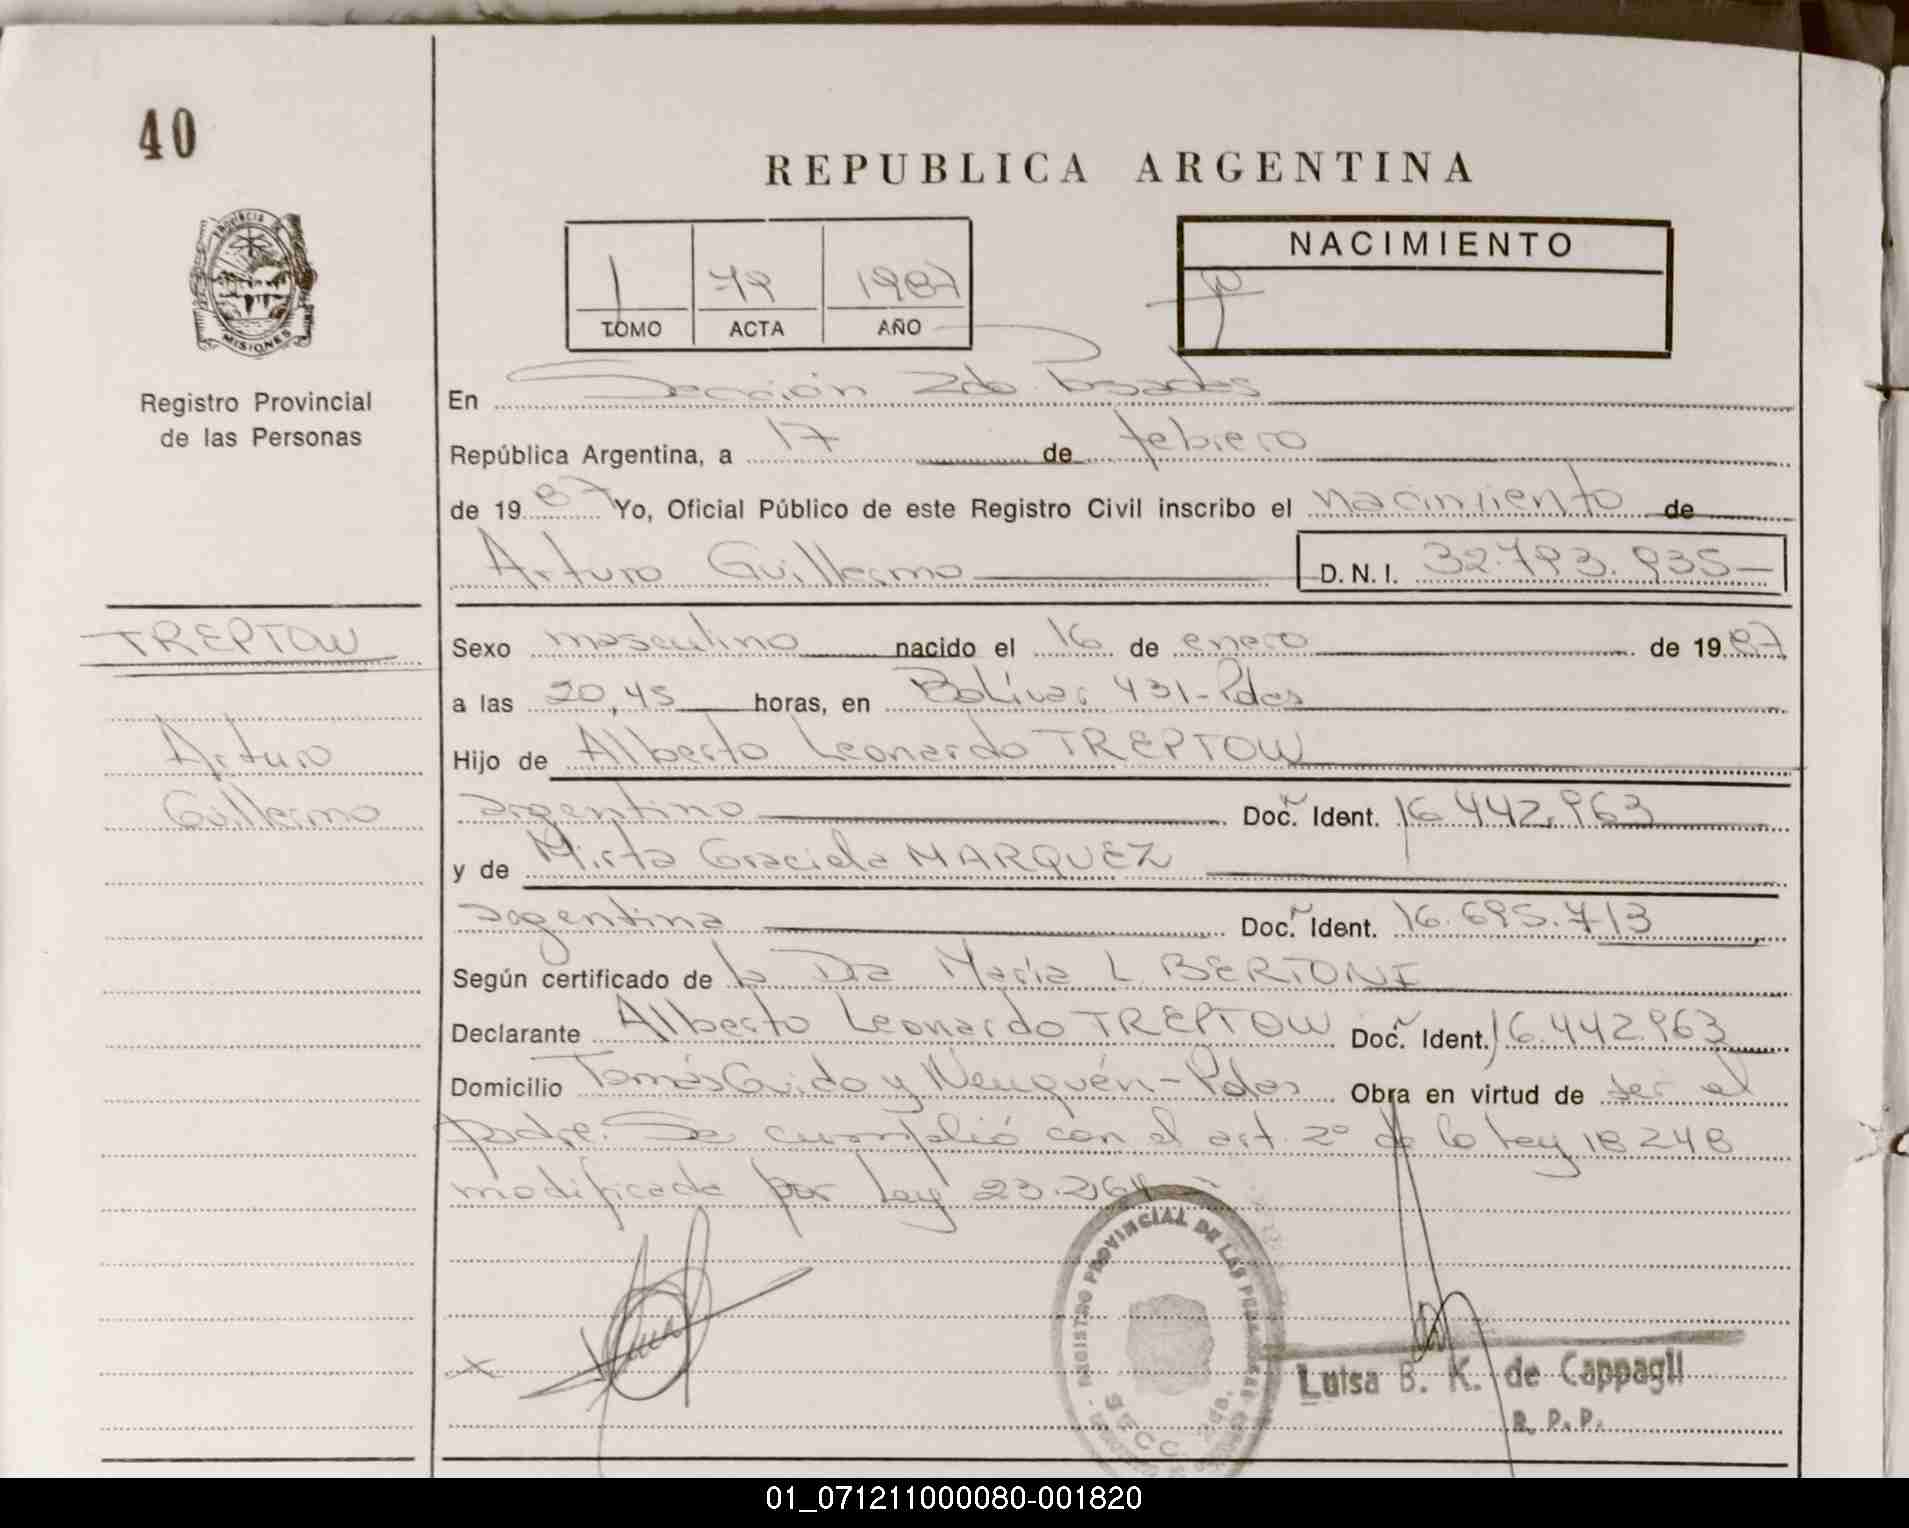 40
REPUBLICA ARGENTINA
PROVINCIA DE
MISIONES
Registro Provincial
de las Personas
1 79 1987
TOMO ACTA AÑO
NACIMIENTO
En Sección 2da Posadas
República Argentina, a 17 de febrero
de 1987 Yo, Oficial Público de este Registro Civil inscribo el nacimiento de
Arturo Guillermo D.N.I. 32.793.935
TREPTOW
Arturo
Guillermo
Sexo masculino nacido el 16 de enero de 1987
a las 20,45 horas, en Bolívar 431-Pdas
Hijo de Alberto Leonardo TREPTOW
argentino Doc. Ident. 16.442.963
y de Mirta Graciela MARQUEZ
argentina Doc. Ident. 16.695.713
Según certificado de la Dra María L. BERTONI
Declarante Alberto Leonardo TREPTOW Doc. Ident. 16.442.963
Domicilio Tomás Guido y Neuquén-Pdas Obra en virtud de ser el
padre. Se cumplió con el art. 2º de la ley 18248
modificada por Ley 23.264
REGISTRO PROVINCIAL DE LAS PERSONAS
SECC. 2da.
Luisa B. K. de Cappagli
R. P. P.
01_071211000080-001820